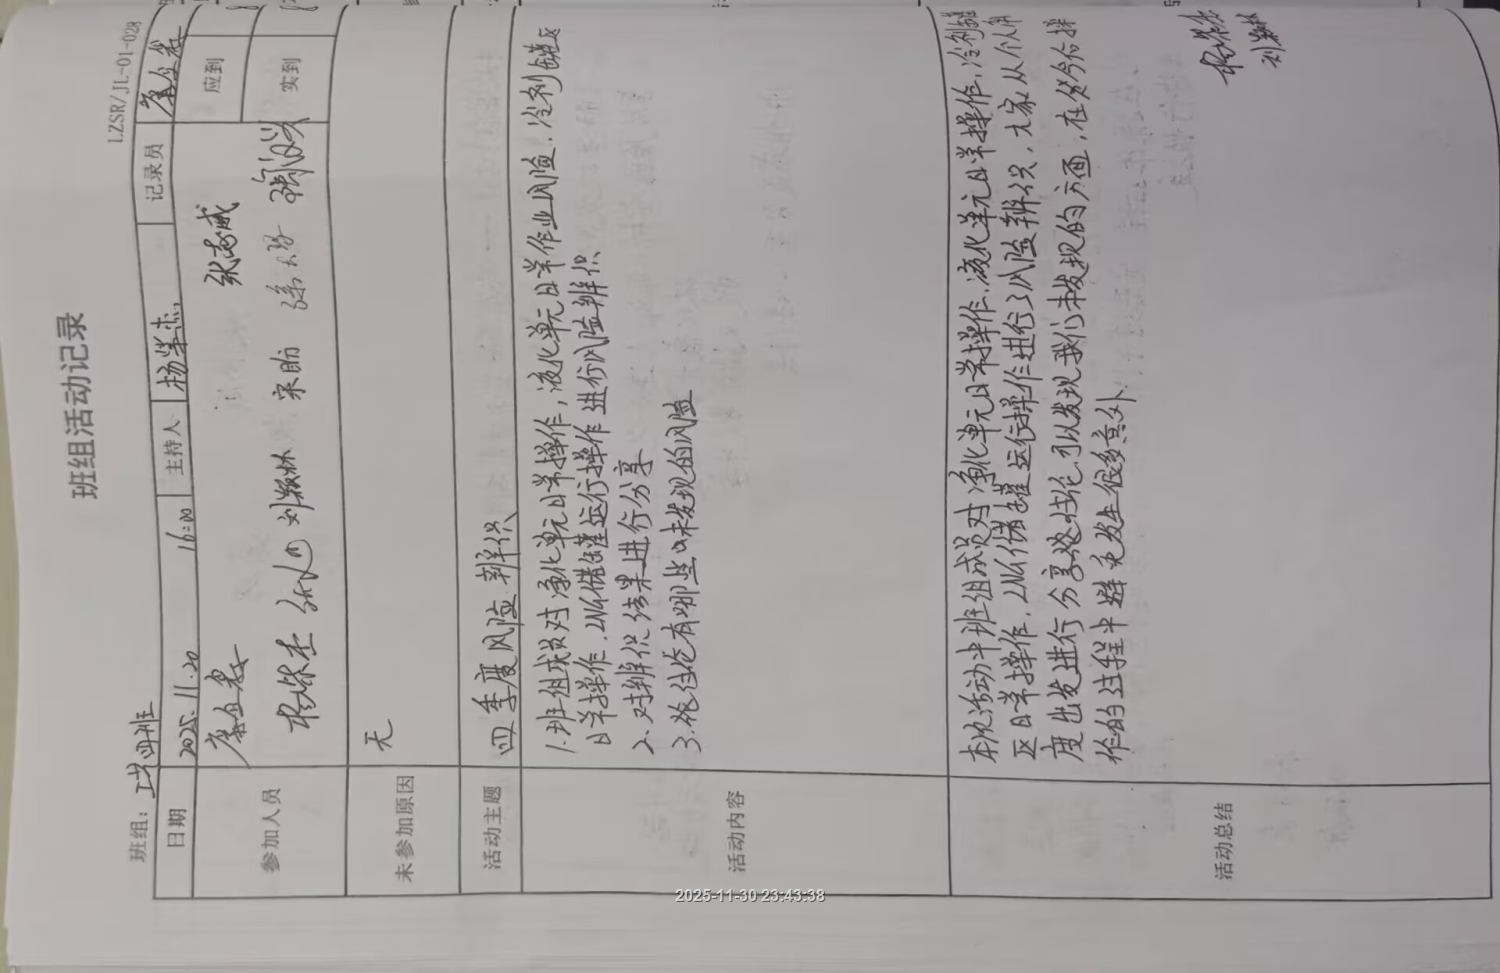 班组活动记录
LZSR/JL-01-028
班组：工艺四班
日期 2025.11.20 16:00 主持人 杨荣杰 记录员
参加人员 张志威 应到
刘颖林 宋盼 实到
未参加原因 无
活动主题 四季度风险辨识
活动内容 1.班组成员对净化单元日常操作，液化单元日常作业风险，冷剂罐区
日常操作，LNG储罐运行操作进行风险辨识
2.对辨识结果进行分享
3.讨论有哪些未发现的风险
活动总结 本次活动中班组成员对净化单元日常操作，液化单元日常操作，冷剂罐
区日常操作，LNG储罐运行操作进行了风险辨识，大家从个人角
度出发进行分享讨论，可以发现我们未发现的方面，在分析操
作的过程中避免发生很多意外
刘颖林
2025-11-30 23:43:38